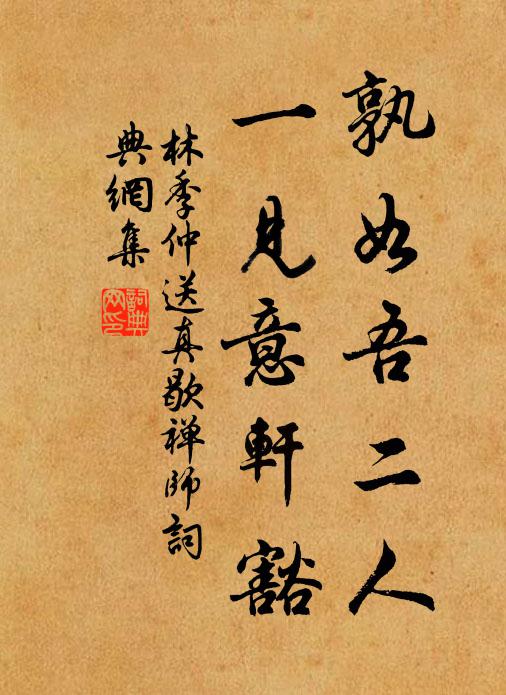 孰如吾二人
一見意軒豁
林季仲送真歇禅師詞
典網集
詞典網印